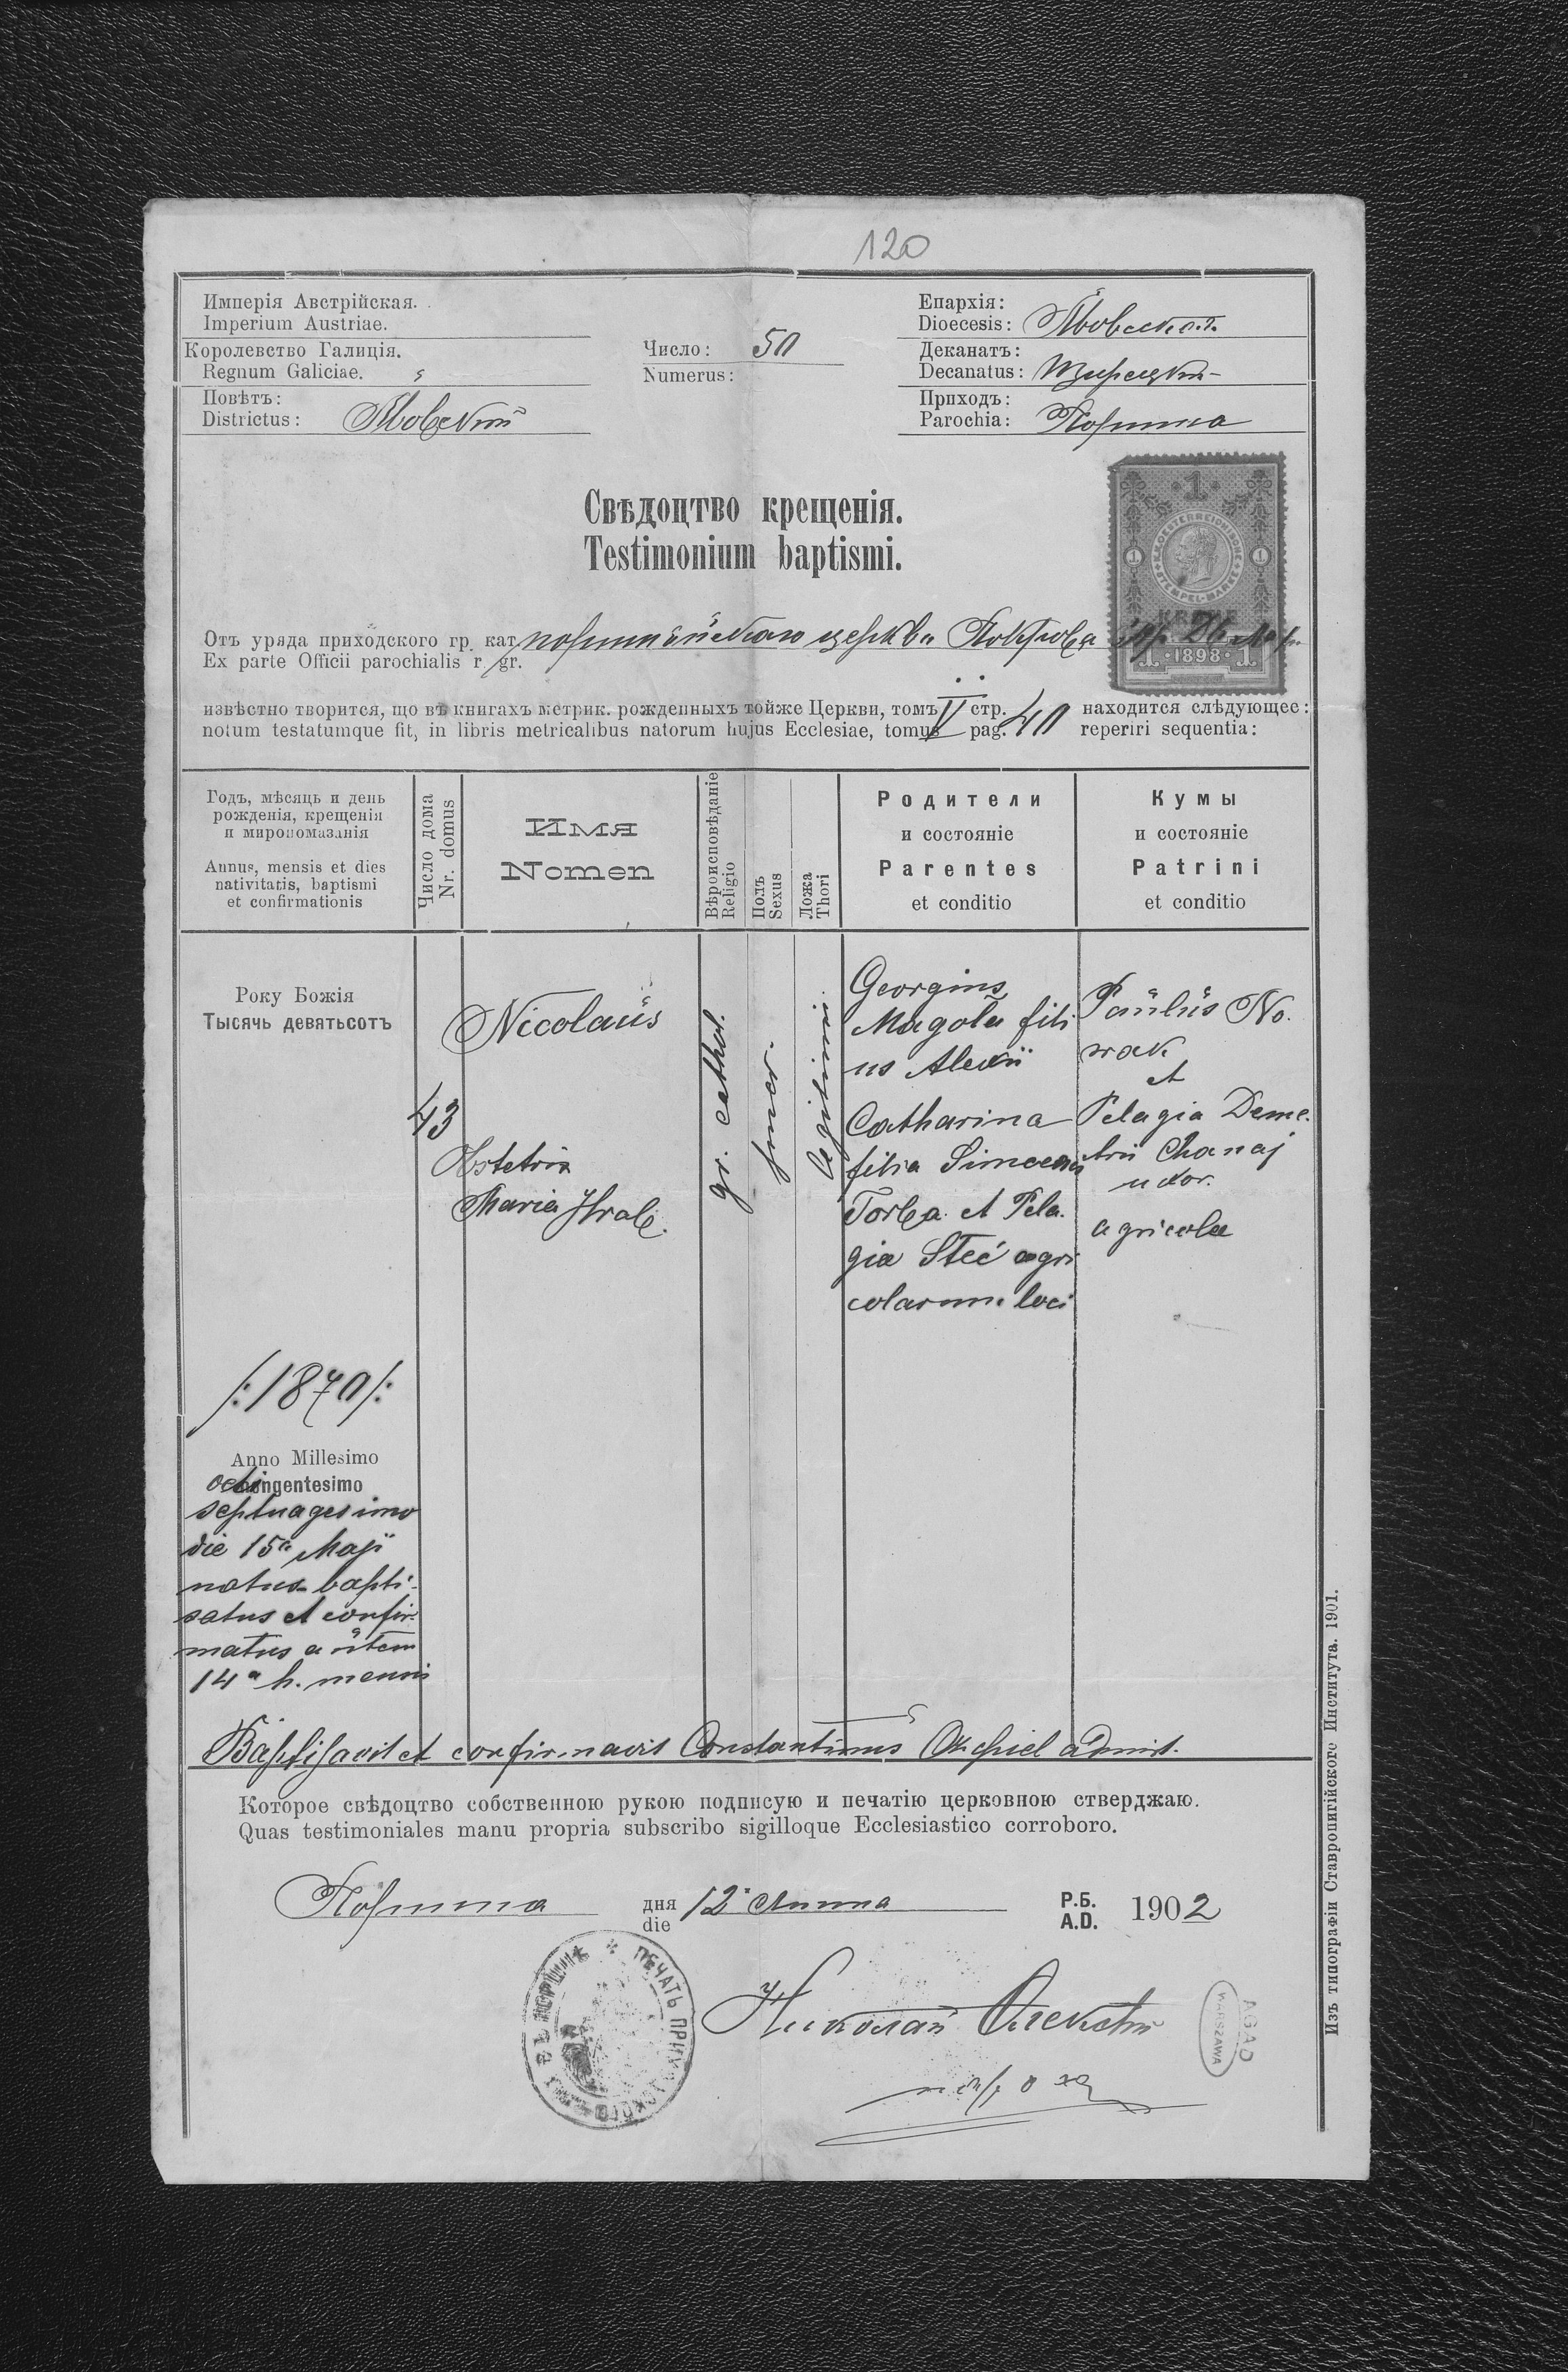 120
Имперія Австрійская.
Imperium Austriae.
Королевство Галиція.
Regnum Galiciae.
Повѣтъ:
Districtus: Львовскій
Число: 50
Numerus:
Епархія:
Dioecesis: Львовска
Деканатъ:
Decanatus: Щирецкій
Приходъ:
Parochia: Поршна
Свѣдоцтво крещенія.
Testimonium baptismi.
1
K.K. OESTERREICHISCHE STEMPEL-MARKE
1 1
KRONE
1 · 1898 · 1
Отъ уряда приходского гр. кат. церкви Покрова
Ex parte Officii parochialis r. gr.
извѣстно творится, що въ книгахъ метрик. рожденныхъ тойже Церкви, томъ V стр. 40 находится слѣдующее:
notum testatumque fit, in libris metricalibus natorum hujus Ecclesiae, tomus pag. reperiri sequentia:
Годъ, мѣсяць и день
рожденія, крещенія
и миропомазанія
Annus, mensis et dies
nativitatis, baptismi
et confirmationis
Число дома
Nr. domus
Имя
Nomen
Вѣроисповѣданіе
Religio
Полъ
Sexus
Ложа
Thori
Родители
и состояніе
Parentes
et conditio
Кумы
и состояніе
Patrini
et conditio
Року Божія
Тысячь девятьсотъ
/:1870/:
Anno Millesimo
octingentesimo
septuagesimo
die 15a Maji
natus bapti-
satus et confir-
matus autem
14a h. mensis
43
Nicolaus
Obstetrix
Maria Hrab.
gr. cathol.
puer.
legitimi
Georgius
Magola fili
us Alexii
Catharina
filia Simeonis
Torba et Pela-
gia Steć agri
colarum loci
Paulus No-
wak
et
Pelagia Deme-
trii Chanaj
uxor.
agricolae
Baptisavit et confirmavit Constantinus admist.
Которое свѣдоцтво собственною рукою подписую и печатію церковною стверджаю.
Quas testimoniales manu propria subscribo sigilloque Ecclesiastico corroboro.
Поршна дня 12 Липца Р.Б. 1902
die A.D.
ПЕЧАТЬ ПРИХОДСКОГО ВЪ ПОРШНѢ
Николай
парох
AGAD
WARSZAWA
Изъ типографіи Ставропигійского Института. 1901.